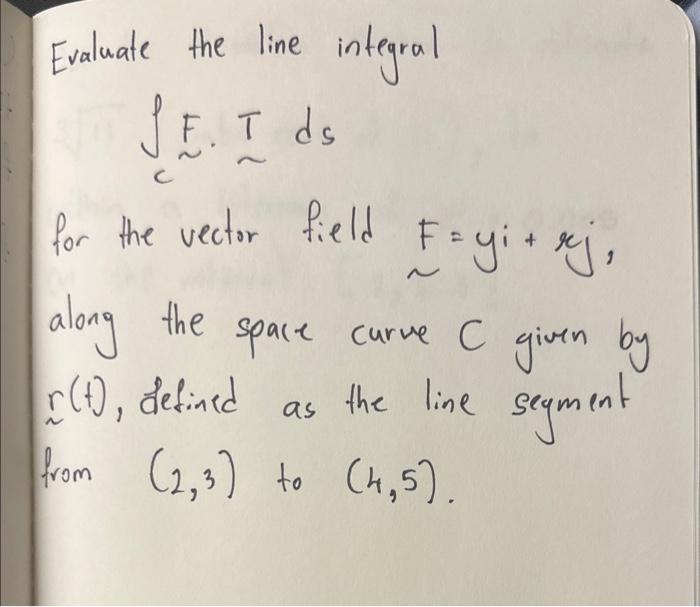 Evaluate the line integral
∫ F . T ds
C
for the vector field F = yi + xj,
along the space curve C given by
r(t), defined as the line segment
from (2,3) to (4,5).